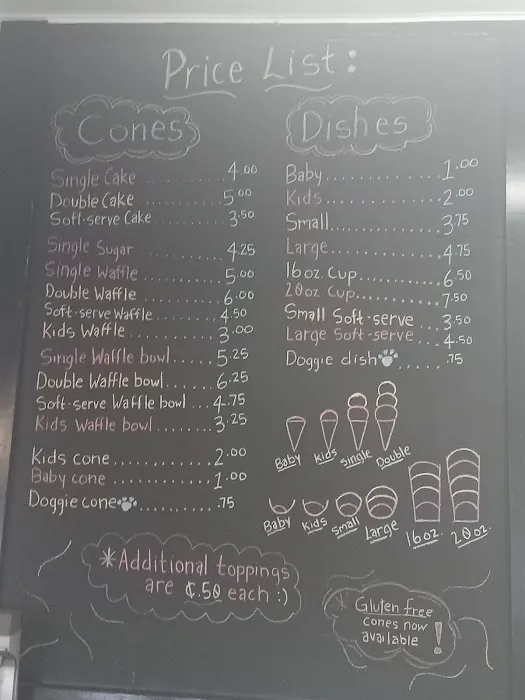 Price List:
Cones
Single Cake .......... 4.00
Double Cake .......... 5.00
Soft-serve Cake .......... 3.50
Single Sugar .......... 4.25
Single Waffle .......... 5.00
Double Waffle .......... 6.00
Soft-serve Waffle .......... 4.50
Kids Waffle .......... 3.00
Single Waffle bowl ..... 5.25
Double Waffle bowl ...... 6.25
Soft-serve Waffle bowl ... 4.75
Kids Waffle bowl ........ 3.25
Kids cone ............ 2.00
Baby cone ............ 1.00
Doggie cone .......... .75
Dishes
Baby .............. 1.00
Kids .............. 2.00
Small .............. 3.75
Large .............. 4.75
16oz. Cup ........... 6.50
20oz Cup ........... 7.50
Small Soft-serve ... 3.50
Large Soft-serve ... 4.50
Doggie dish ...... .75
Baby Kids Single Double
Baby Kids Small Large 16oz. 20oz.
*Additional toppings
are ¢.50 each :)
* Gluten free
cones now
available !